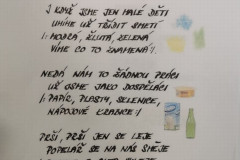 I KDYŽ JSME JEN MALÉ DĚTI
UMÍME UŽ TŘÍDIT SMETI
/: MODRÁ, ŽLUTÁ, ZELENÁ
VÍME CO TO ZNAMENÁ :/
NEDÁ NÁM TO ŽÁDNOU PRÁCI
UŽ JSME JAKO DOSPĚLÁCI
/: PAPÍR, PLASTY, SKLENICE,
NÁPOJOVÉ KRABICE :/
PRŠÍ, PRŠÍ JEN SE LEJE
POPELÁŘ SE NA NÁS SMĚJE